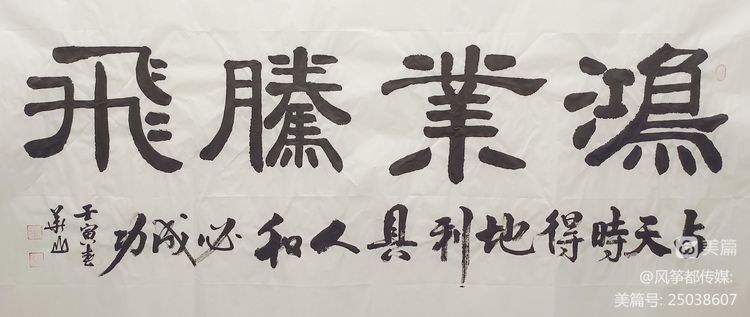 鴻業騰飛
占天時得地利具人和必成功
壬寅春
華山
美篇
@风筝都传媒:
美篇号: 25038607